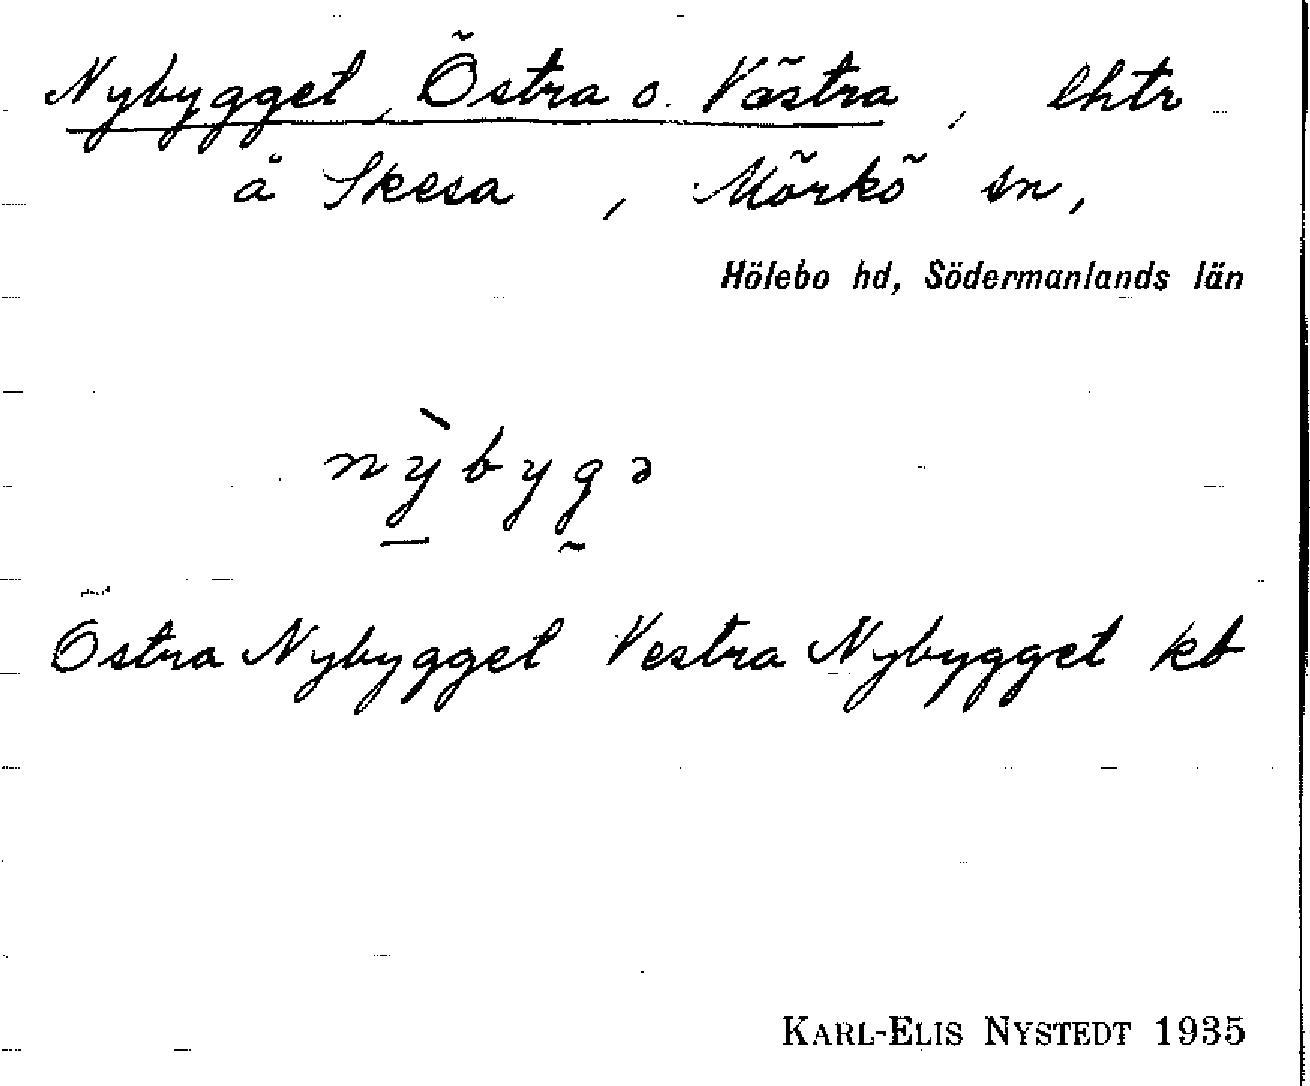 Nybygget, Östra o. Västra, lhtr
å Skesa, Mörkö sn,
Hölebo hd, Södermanlands län
nỳbygə
Östra Nybygget Vestra Nybygget kb
KARL-ELIS NYSTEDT 1935